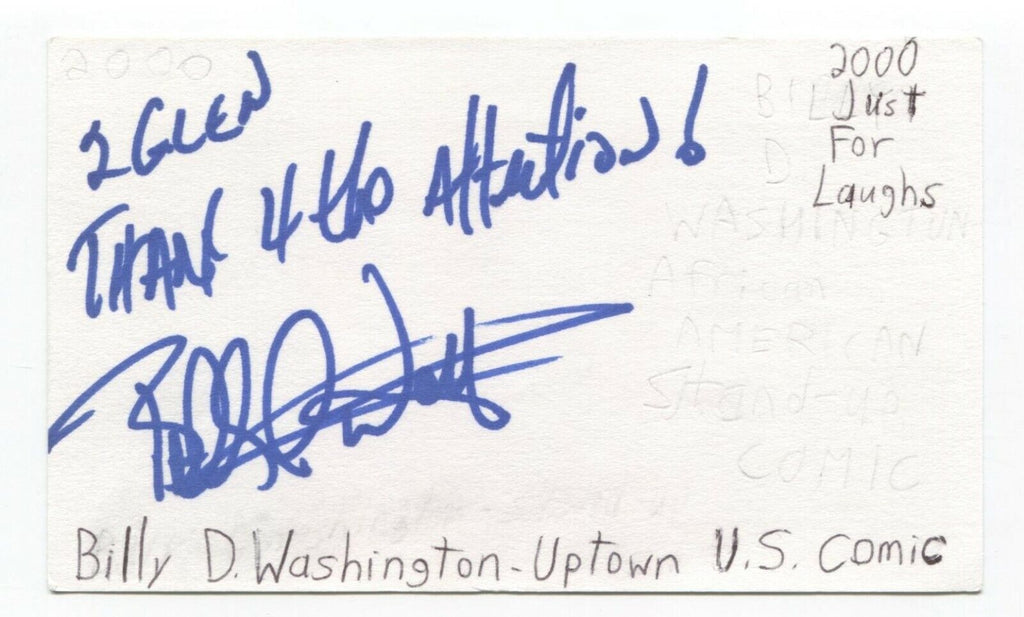 2000
2 GLEN
THANK 4 the Attention!
2000
Just
For
Laughs
BILLY
D.
WASHINGTON
African
AMERICAN
Stand-up
COMIC
Billy D. Washington - Uptown U.S. Comic